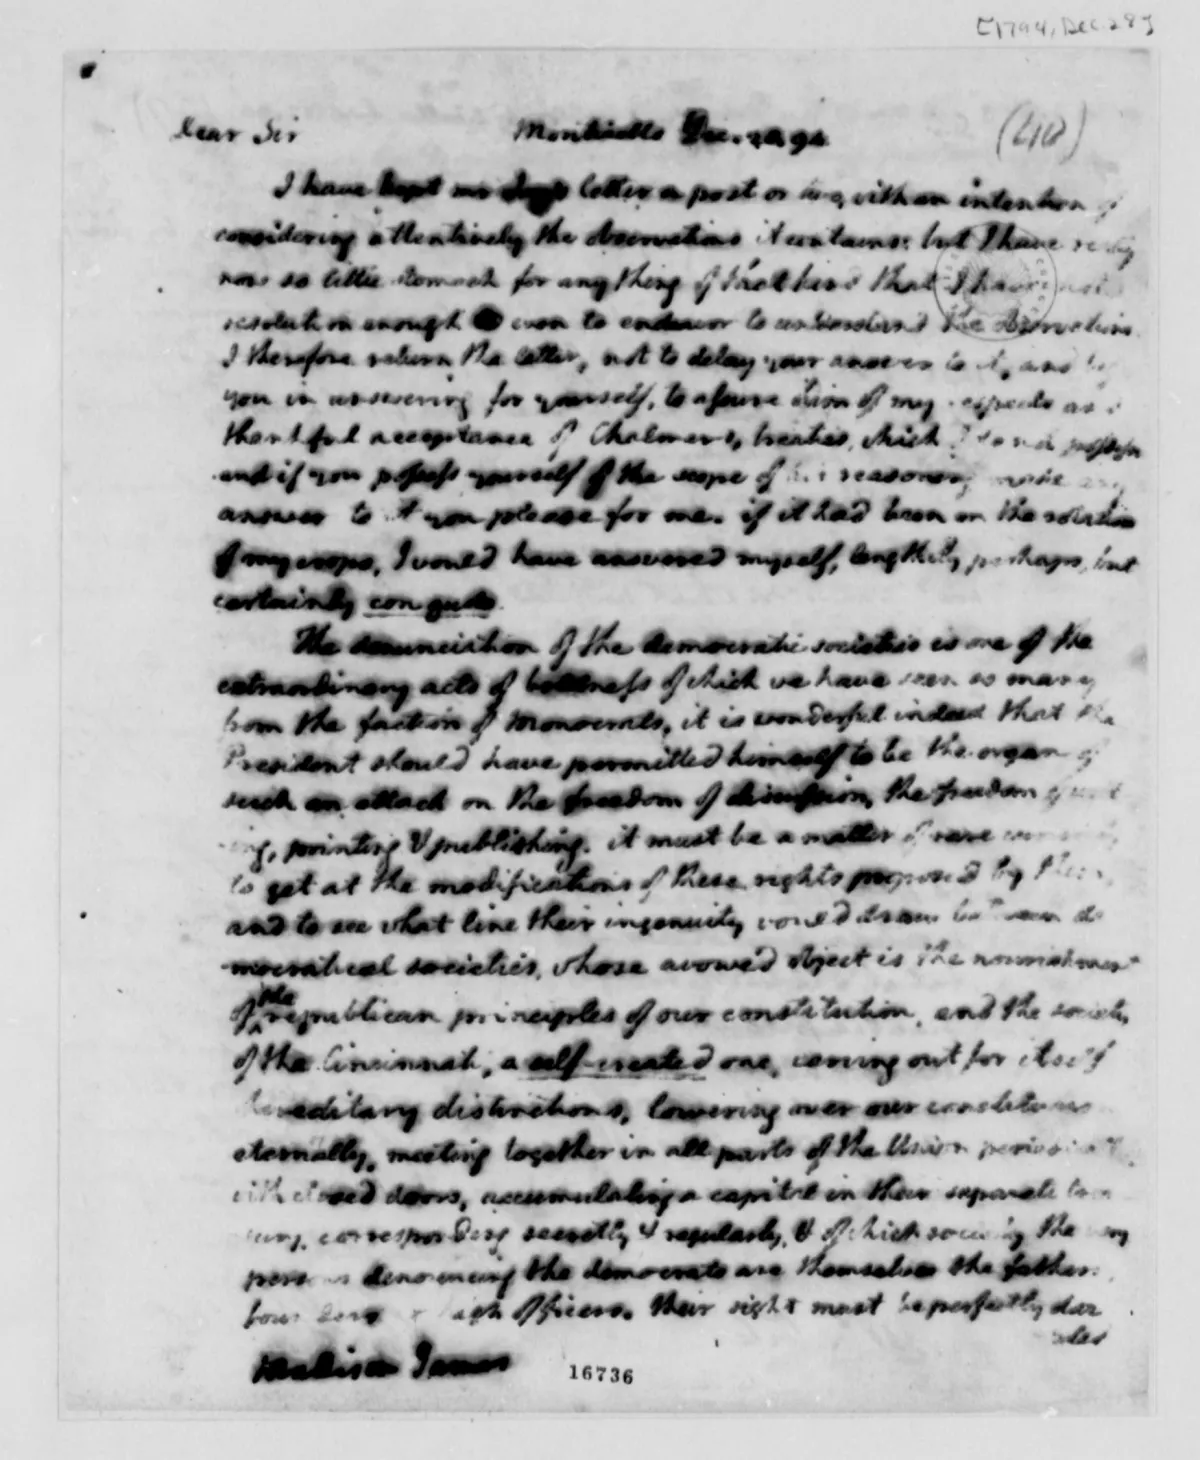 [1794, Dec. 28]
Dear Sir Monticello Dec. 28. 94.
I have kept mr letter a post or two, with an intention of
considering attentively the observations it contains: but I have really
now so little stomach for any thing of that kind that I have not
resolution enough even to endeavor to understand the observations.
I therefore return the letter, not to delay your answer to it, and beg
you in answering for yourself, to assure him of my respects and
thankful acceptance of Chalmers's treaties, which I do not possess
and if you possess yourself of the scope of his reasoning make any
answer to it you please for me. if it had been on the rotation
of my crops, I would have answered myself, lengthily perhaps, but
certainly con gusto.
The denunciation of the democratic societies is one of the
extraordinary acts of boldness of which we have seen so many
from the faction of Monocrats, it is wonderful indeed that the
President should have permitted himself to be the organ of
such an attack on the freedom of discussion, the freedom of writ
-ing, printing & publishing. it must be a matter of rare curiosity
to get at the modifications of these rights proposed by them,
and to see what line their ingenuity would draw between de
-mocratical societies, whose avowed object is the nourishment
of the republican principles of our constitution, and the society
of the Cincinnati, a self-created one, carving out for itself
hereditary distinctions, lowering over our constitution
eternally, meeting together in all parts of the Union periodically
with closed doors, accumulating a capital in their separate trea
-sury, corresponding secretly & regularly, & of which society the very
persons denouncing the democrats are themselves the fathers,
founders & high officers. their sight must be perfectly daz
zled
Madison James
16736